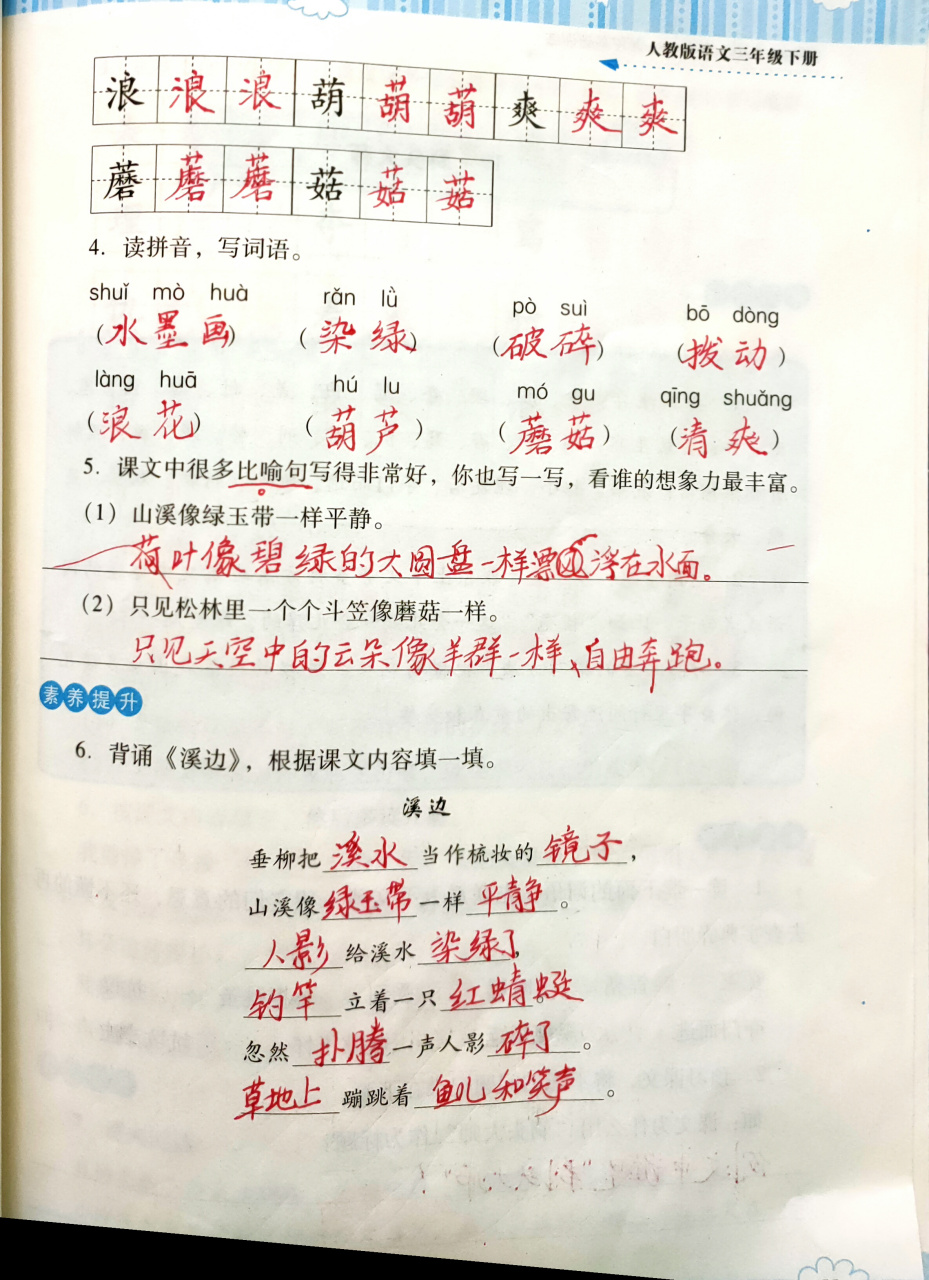 人教版语文三年级下册
浪 浪 浪 葫 葫 葫 爽 爽 爽
蘑 蘑 蘑 菇 菇 菇
4. 读拼音，写词语。
shuǐ mò huà rǎn lǜ pò suì bō dòng
（水墨画） （染绿） （破碎） （拨动）
làng huā hú lu mó gu qīng shuǎng
（浪花） （葫芦） （蘑菇） （清爽）
5. 课文中很多比喻句写得非常好，你也写一写，看谁的想象力最丰富。
（1）山溪像绿玉带一样平静。
荷叶像碧绿的大圆盘一样漂浮在水面。
（2）只见松林里一个个斗笠像蘑菇一样。
只见天空中的云朵像羊群一样、自由奔跑。
素养提升
6. 背诵《溪边》，根据课文内容填一填。
溪边
垂柳把 溪水 当作梳妆的 镜子，
山溪像 绿玉带 一样 平静。
人影 给溪水 染绿了，
钓竿 立着一只 红蜻蜓
忽然 扑腾 一声人影 碎了。
草地上 蹦跳着 鱼儿和笑声。